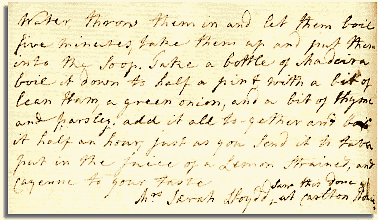 Water throw them in and let them boil
five minutes, take them up and put them
into the Soop. Take a bottle of Madeira
boil it down to half a pint with a bit of
lean Ham, a green onion, and a bit of thyme
and parsley, add it all to-gether and boil
it half an hour, just as you send it to table
put in the juice of a Lemon strained, and
cayenne to your taste
Saw this done
Mrs Sarah Lloyd at Carlton